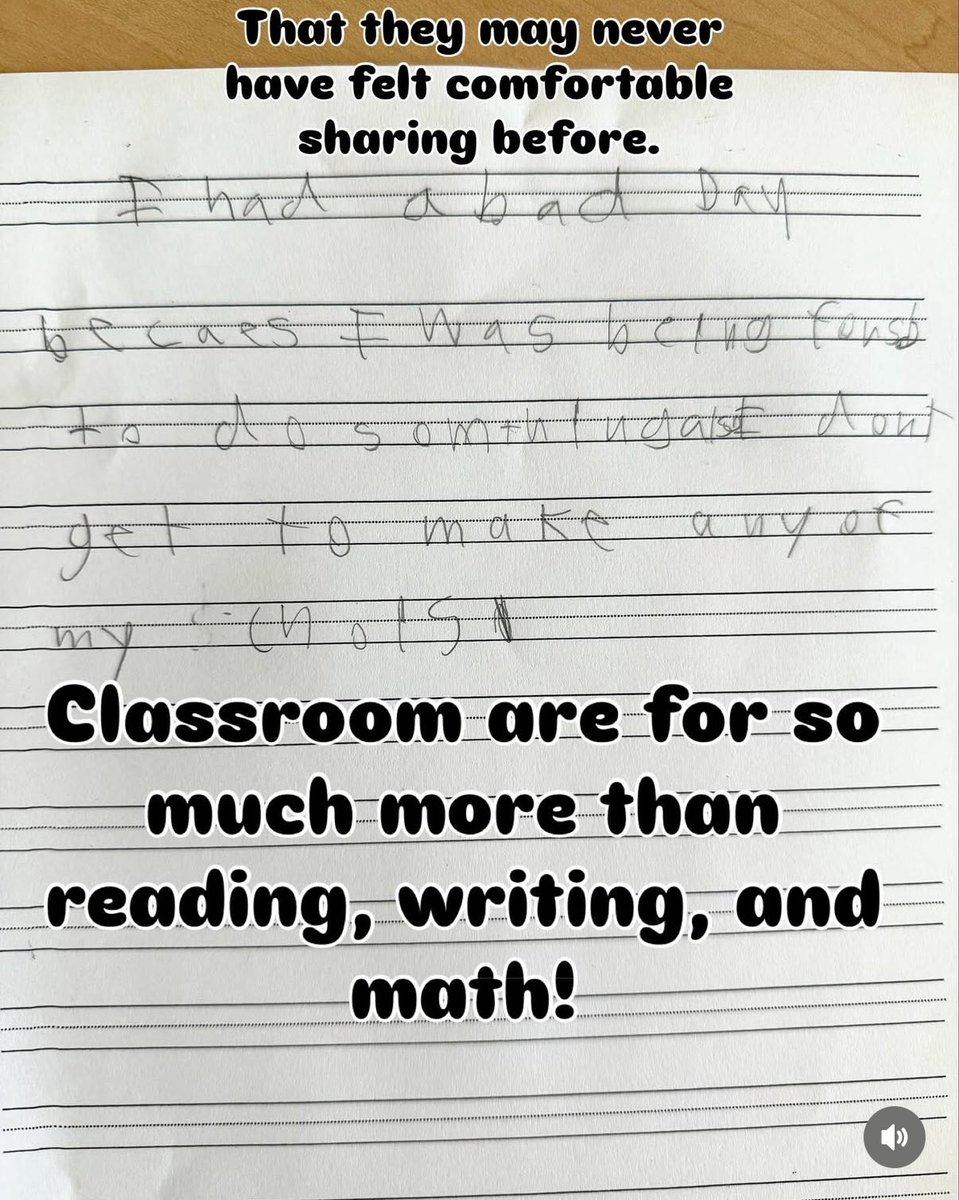 That they may never
have felt comfortable
sharing before.
I had a bad Day
becaes I was being fonsb
to do somthing alst I dont
get to make any of
my chois
Classroom are for so
much more than
reading, writing, and
math!